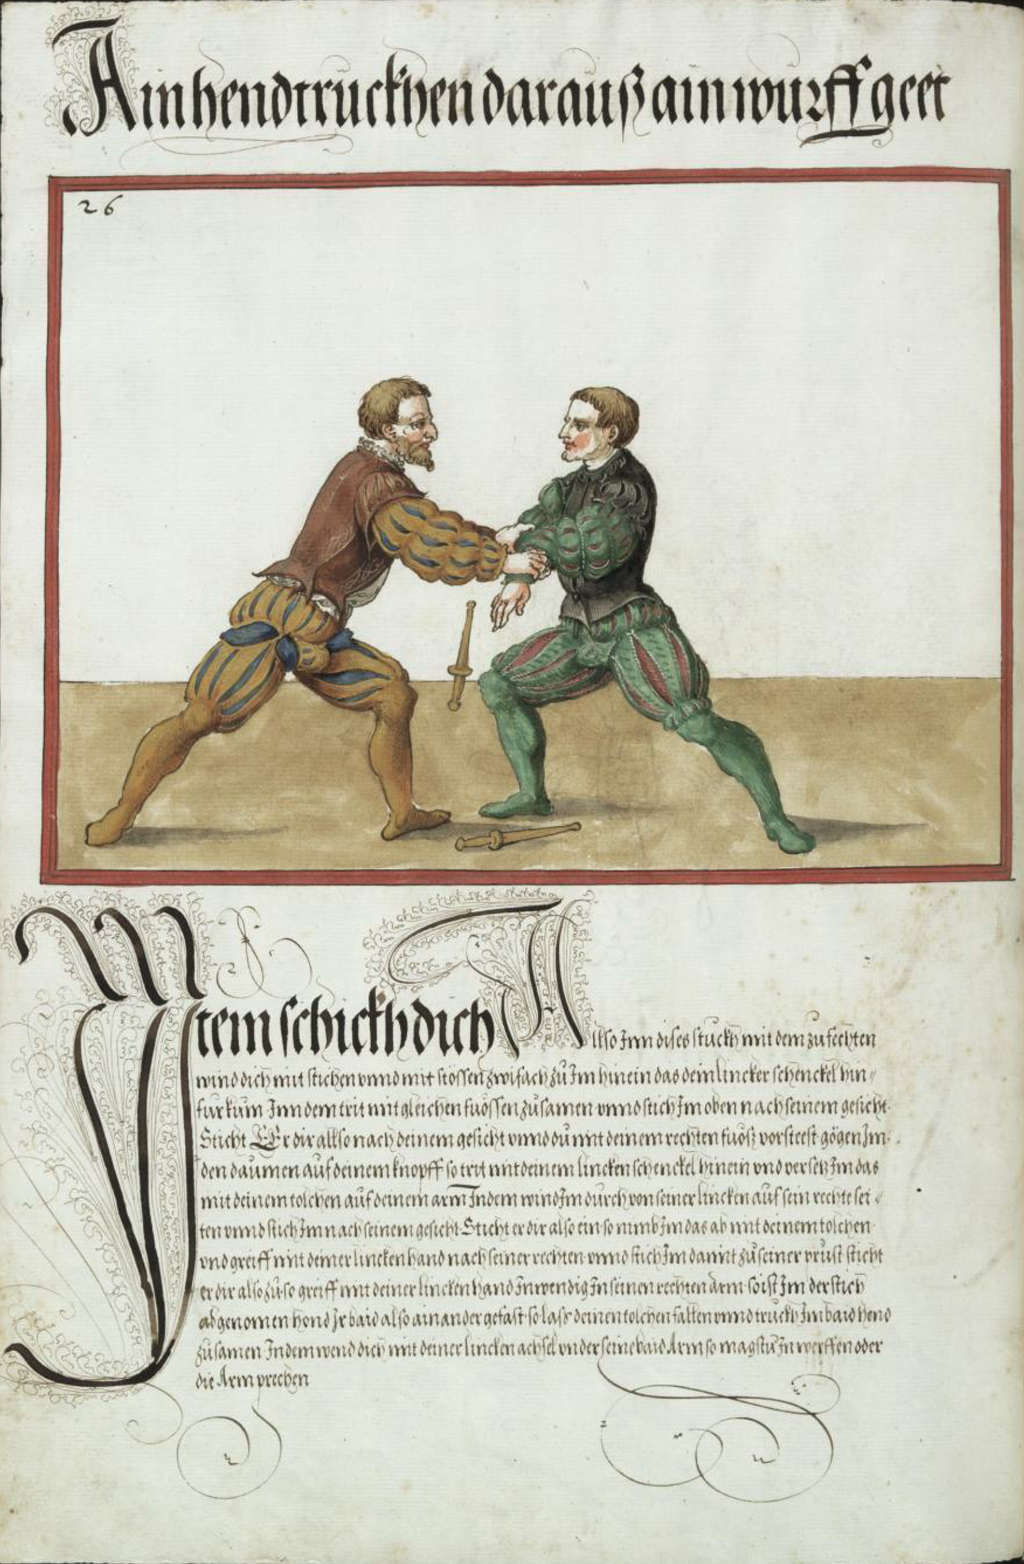 Ain hendtruckhen darauß ain wurff geet
26
Item schickh dich Allso Inn dises stuckh mit dem zufechten
wind dich mit stichen vnnd mit stossen zwifach zu Im hinein das dein lincker schenckel hin=
fur kum Inn dem trit mit gleichen fuössen zusamen vnnd stich Im oben nach seinem gesicht.
Sticht Er dir allso nach deinem gesicht vnnd du mit deinem rechten fuösz vorsteest gögen Im.
den daumen auf deinem knopff so trit mit deinem lincken schenckel hinein vnd versetz Im das
mit deinem tolchen auf deinem arm Indem wind Im durch von seiner lincken auf sein rechte sei=
ten vnnd stich Im nach seinem gesicht. Sticht er dir also ein so nimb Im das ab mit deinem tolchen
vnd greiff mit deiner lincken hand nach seiner rechten vnnd stich Im damit zu seiner prust sticht
er dir also zu. so greiff mit deiner lincken hand Inwendig In seinen rechten arm. so ist Im der stich
abgenomen hond Ir baid also ain ander gefast so lass deinen tolchen fallen vnnd truckh Im baid hend
zusamen Indem wend dich mit deiner lincken achsel vnder seine baid Arm so magstu In werffen oder
die Arm prechen